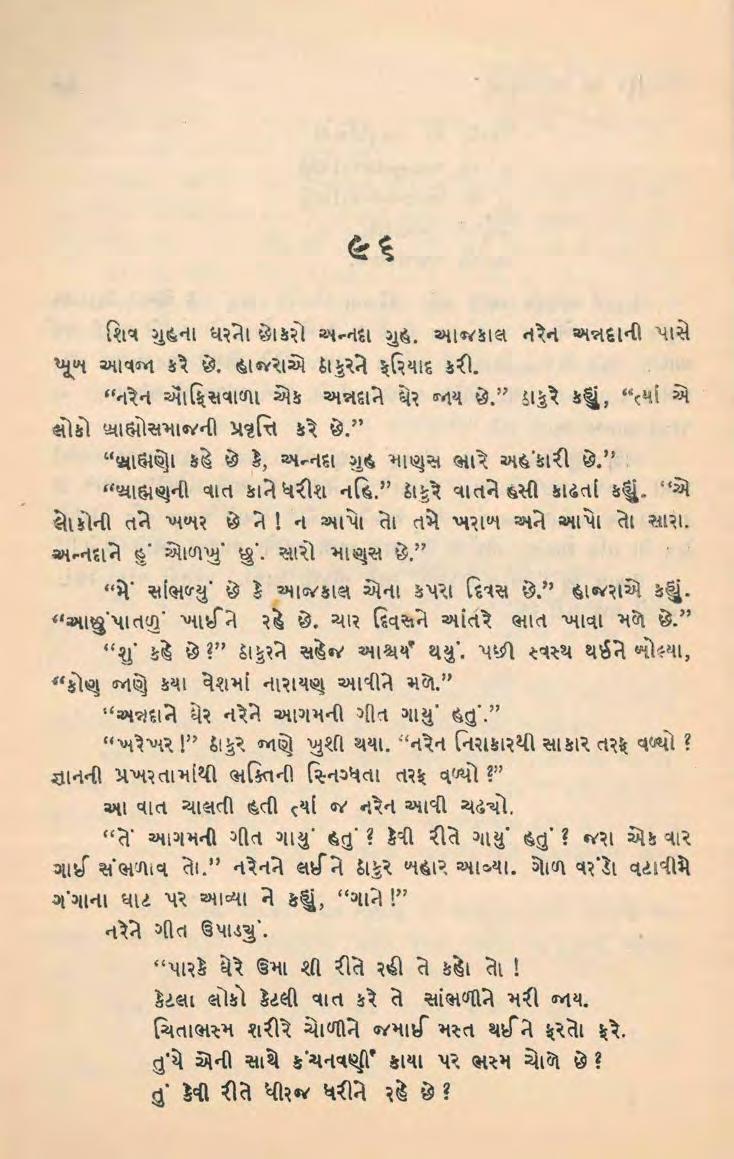 ૯૬
શિવ ગુહના ઘરનો છોકરો અન્નદા ગુહ. આજકાલ નરેન અન્નદાની પાસે
ખૂબ આવજા કરે છે. હાજરાએ ઠાકુરને ફરિયાદ કરી.
“નરેન ઑફિસવાળા એક અન્નદાને ઘેર જાય છે.” ઠાકુરે કહ્યું, “ત્યાં એ
લોકો બ્રાહ્મોસમાજની પ્રવૃત્તિ કરે છે.”
“બ્રાહ્મણો કહે છે કે, અન્નદા ગુહ માણસ ભારે અહંકારી છે.”
“બ્રાહ્મણની વાત કાને ધરીશ નહિ.” ઠાકુરે વાતને હસી કાઢતાં કહ્યું. “એ
લોકોની તને ખબર છે ને! ન આપો તો તમે ખરાબ અને આપો તો સારા.
અન્નદાને હું ઓળખું છું. સારો માણસ છે.”
“મેં સાંભળ્યું છે કે આજકાલ એના કપરા દિવસ છે.” હાજરાએ કહ્યું.
“આછુંપાતળું ખાઈને રહે છે. ચાર દિવસને આંતરે ભાત ખાવા મળે છે.”
“શું કહે છે?” ઠાકુરને સહેજ આશ્ચર્ય થયું. પછી સ્વસ્થ થઈને બોલ્યા,
“કોણ જાણે કયા વેશમાં નારાયણ આવીને મળે.”
“અન્નદાને ઘેર નરેને આગમની ગીત ગાયું હતું.”
“ખરેખર!” ઠાકુર જાણે ખુશી થયા. “નરેન નિરાકારથી સાકાર તરફ વળ્યો?
જ્ઞાનની પ્રખરતામાંથી ભક્તિની સ્નિગ્ધતા તરફ વળ્યો?”
આ વાત ચાલતી હતી ત્યાં જ નરેન આવી ચઢ્યો.
“તેં આગમની ગીત ગાયું હતું? કેવી રીતે ગાયું હતું? જરા એક વાર
ગાઈ સંભળાવ તો.” નરેનને લઈને ઠાકુર બહાર આવ્યા. ગોળ વરંડો વટાવીમે
ગંગાના ઘાટ પર આવ્યા ને કહ્યું, “ગાને!”
નરેને ગીત ઉપાડ્યું.
“પારકે ઘેરે ઉમા શી રીતે રહી તે કહો તો!
કેટલા લોકો કેટલી વાત કરે તે સાંભળીને મરી જાય.
ચિતાભસ્મ શરીરે ચોળીને જમાઈ મસ્ત થઈને ફરતો ફરે.
તુંયે એની સાથે કંચનવર્ણી કાયા પર ભસ્મ ચોળે છે?
તું કેવી રીતે ધીરજ ધરીને રહે છે?